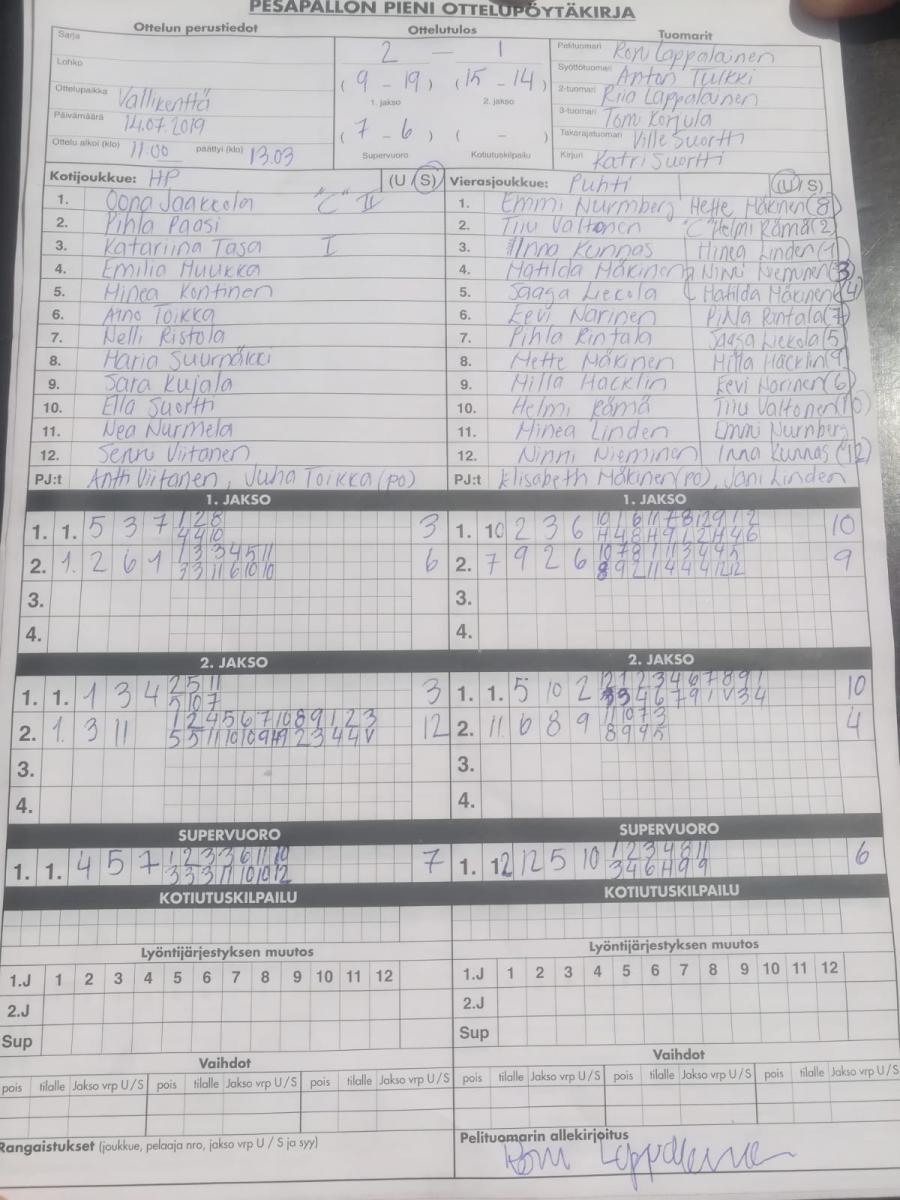 PESÄPALLON PIENI OTTELUPÖYTÄKIRJA
Ottelun perustiedot Ottelutulos Tuomarit
Sarja
Lohko
Ottelupaikka Vallikenttä
Päivämäärä 14.07.2019
Ottelu alkoi (klo) 11.00 päättyi (klo) 13.03
2 — 1
( 9 - 19 ) ( 15 - 14 )
1. jakso 2. jakso
( 7 - 6 ) ( - )
Supervuoro Kotiutuskilpailu
Pelituomari Roni Lappalainen
Syöttötuomari Anton Tulkki
2-tuomari Riia Lappalainen
3-tuomari Tom Korjula
Takarajatuomari Ville Suortti
Kirjuri Katri Suortti
Kotijoukkue: HP (U / S)
1. Oona Jaakkola "C" II
2. Pihla Paasi
3. Katariina Tasa I
4. Emilia Huukka
5. Minea Kontinen
6. Aino Toikka
7. Nelli Ristola
8. Maria Suurnäkki
9. Sara Kujala
10. Ella Suortti
11. Nea Nurmela
12. Senni Viitanen
PJ:t Antti Viitanen, Juha Toikka (po)
Vierasjoukkue: Puhti (U / S)
1. Emmi Nurmberg Mette Mäkinen (8)
2. Tiiu Valtonen "C" Helmi Rämä (2)
3. Inna Kunnas Minea Linden (1)
4. Matilda Mäkinen Ninni Nieminen (3)
5. Saaga Liekola Matilda Mäkinen (4)
6. Eevi Narinen Pihla Rintala (7)
7. Pihla Rintala Saaga Liekola (5)
8. Mette Mäkinen Milla Hacklin (9)
9. Milla Hacklin Eevi Narinen (6)
10. Helmi Rämä Tiiu Valtonen (10)
11. Minea Linden Emmi Nurnberg
12. Ninni Nieminen Inna Kunnas (12)
PJ:t Elisabeth Mäkinen (po), Jani Linden
1. JAKSO 1. JAKSO
1. 1. 5 3 7 1 2 8 3
4 4 10
2. 1. 2 6 1 1 3 3 4 5 11 6
3 3 11 6 10 10
3.
4.
1. 10 2 3 6 10
2. 7 9 2 6 9
3.
4.
2. JAKSO 2. JAKSO
1. 1. 1 3 4 2 5 11 3
5 10 7
2. 1. 3 11 1 2 4 5 6 7 10 8 9 1 2 3 12
3.
4.
1. 1. 5 10 2 12 1 2 3 4 6 7 8 9 1 10
2. 11 6 8 9 11 10 7 3 4
8 9 9 5
3.
4.
SUPERVUORO SUPERVUORO
1. 1. 4 5 7 1 2 3 3 6 11 10 7
3 3 3 11 10 10 12
1. 12 12 5 10 1 2 3 4 8 11 6
3 4 6 4 9 9
KOTIUTUSKILPAILU KOTIUTUSKILPAILU
Lyöntijärjestyksen muutos Lyöntijärjestyksen muutos
1.J 1 2 3 4 5 6 7 8 9 10 11 12 1.J 1 2 3 4 5 6 7 8 9 10 11 12
2.J 2.J
Sup Sup
Vaihdot Vaihdot
pois tilalle Jakso vrp U / S pois tilalle Jakso vrp U / S pois tilalle Jakso vrp U / S pois tilalle Jakso vrp U / S pois tilalle Jakso vrp U / S pois tilalle Jakso vrp U / S
Rangaistukset (joukkue, pelaaja nro, jakso vrp U / S ja syy) Pelituomarin allekirjoitus
Roni Lappalainen